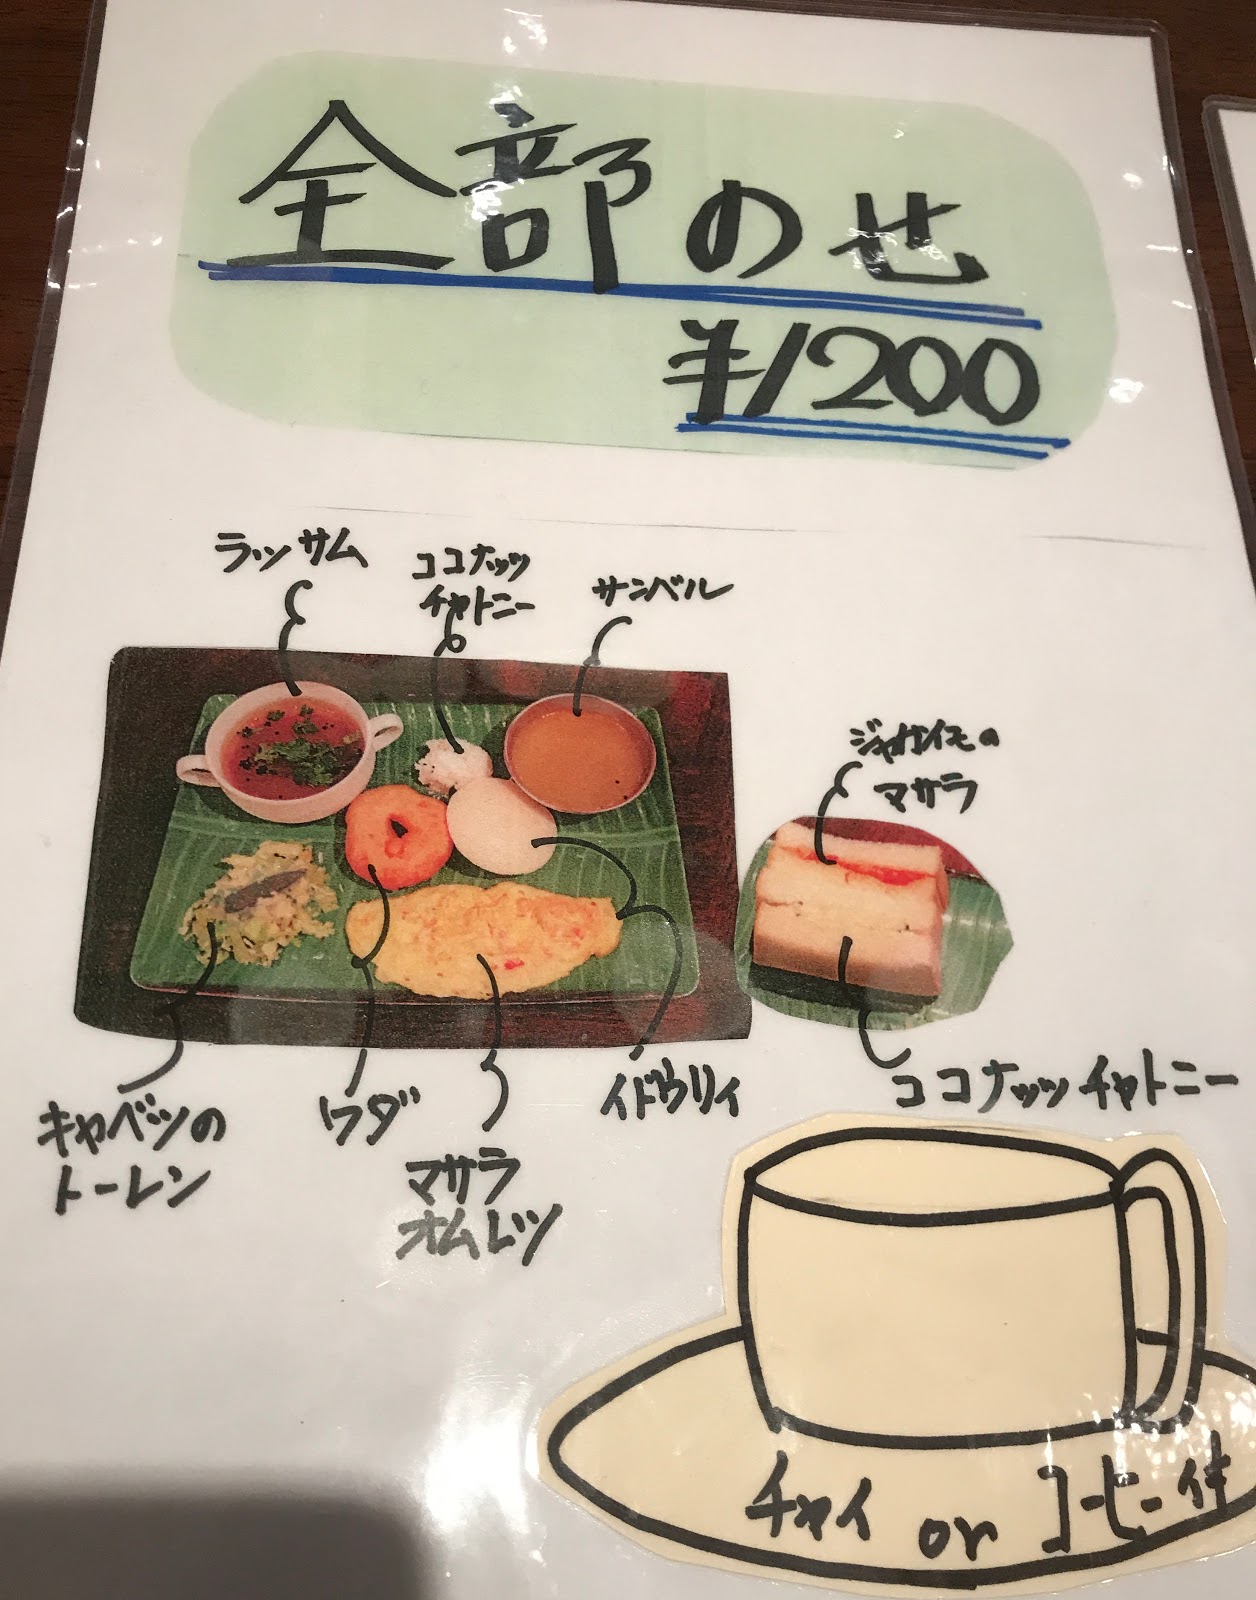 全部のせ
¥1200
ラッサム
ココナッツ
チャトニー
サンバル
ジャガイモの
マサラ
ココナッツチャトニー
イドゥリィ
ワダ
マサラ
オムレツ
キャベツの
トーレン
チャイ or コーヒー付